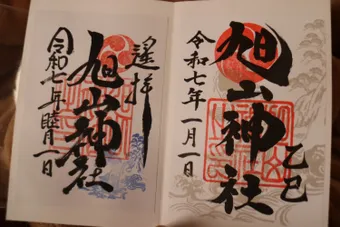 旭山神社
乙巳
令和七年一月一日
遙拝
旭山神社
令和七年睦月一日